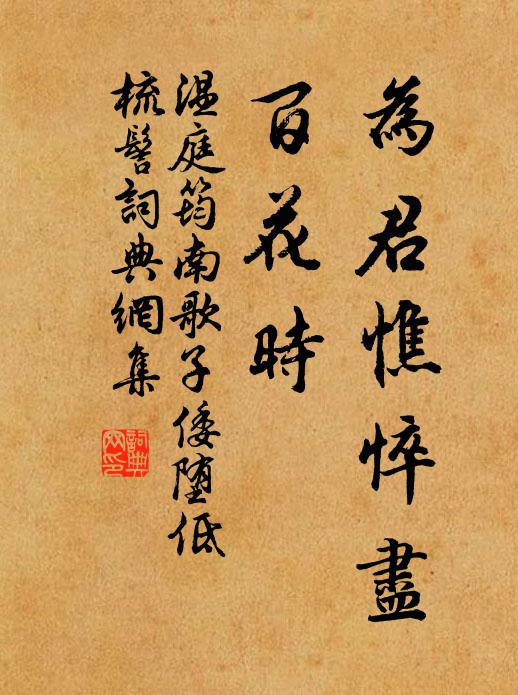 為君憔悴盡
百花時
温庭筠南歌子倭堕低
梳髻詞典網集
詞典網印